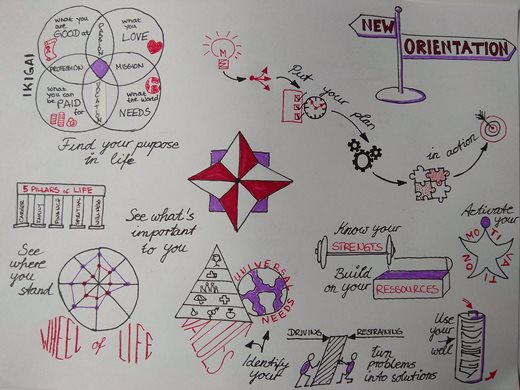 IKIGAI
What you are GOOD at
What you LOVE
PASSION
PROFESSION
MISSION
VOCATION
What you can be PAID for
What the World NEEDS
Find your purpose
in life
M
Put
your
plan
in action
NEW
ORIENTATION
5 PILLARS of LIFE
CAREER
FAMILY
FINANCE
WELLNESS
See what's
important
to you
See
where
you
stand
WHEEL of LIFE
VALUES
UNIVERSAL
NEEDS
Identify
your
Know your
STRENGTS
Build
on your
RESSOURCES
Activate
your
MOTIVATION
DRIVING
RESTRAINING
turn
problems
into solutions
Use
your
well